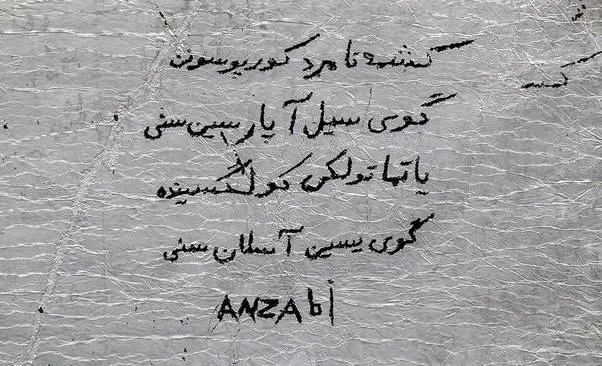 گشمه نامرد کورپوسونن
گوی سیل آپارسین سنی
یاتما تولکی کولگسینده
گوی یسین آسلان سنی
ANZAbi